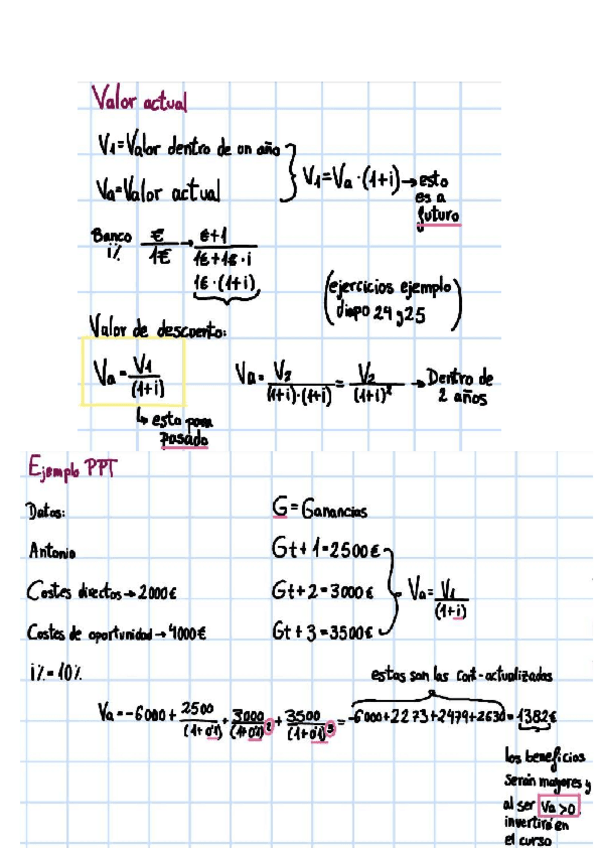 Valor actual
V1=Valor dentro de un año
Va=Valor actual
V1=Va·(1+i)→esto
es a
futuro
Banco i% €/1€ → t+1/1€+1€·i
1€·(1+i)
(ejercicios ejemplo
diapo 24 y 25)
Valor de descuento:
Va=V1/(1+i)
↳ esto para
pasado
Va=V2/(1+i)·(1+i)=V2/(1+i)² → Dentro de
2 años
Ejemplo PPT
Datos:
G=Ganancias
Antonio
Gt+1=2500€
Costes directos→2000€
Gt+2=3000€
Va=V1/(1+i)
Costes de oportunidad→4000€
Gt+3=3500€
i%=10%
estas son las cant.actualizadas
Va=-6000+2500/(1+0'1)+3000/(1+0'1)²+3500/(1+0'1)³=-6000+2273+2479+2630=1382€
los beneficios
serán mayores y
al ser Va>0
invertiré en
el curso